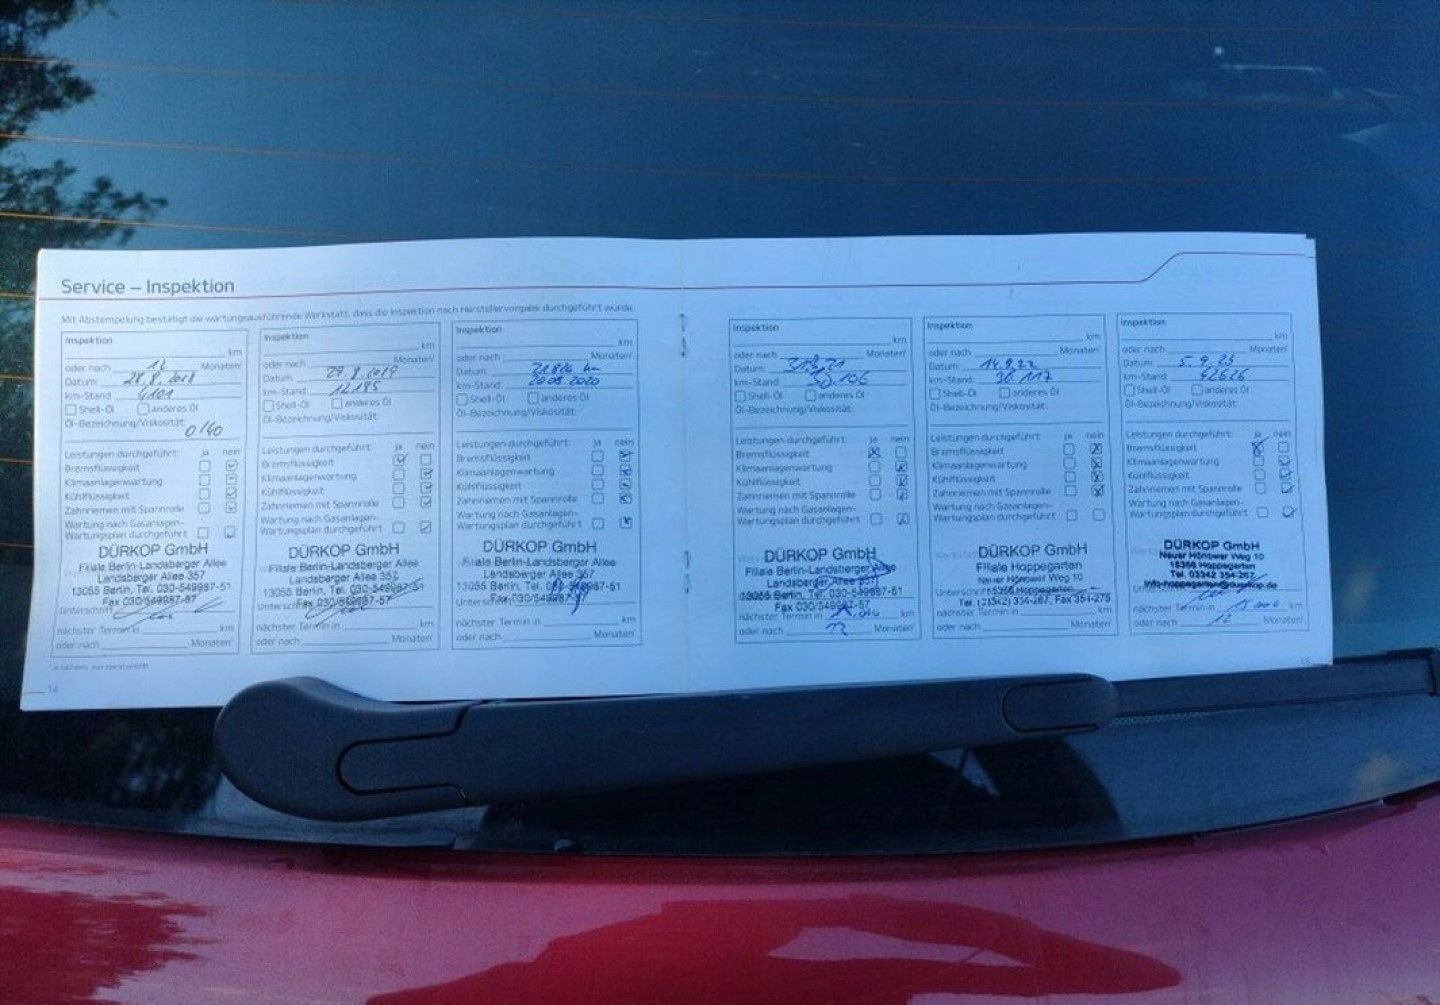 Service – Inspektion
Mit Abstempelung bestätigt die wartungsausführende Werkstatt, dass die Inspektion nach Herstellervorgabe durchgeführt wurde.
Inspektion
km
oder nach 12 Monaten¹
Datum: 28.8.2018
km-Stand 4101
Shell-Öl anderes Öl
Öl-Bezeichnung/Viskosität:
0/40
Leistungen durchgeführt: ja nein
Bremsflüssigkeit
Klimaanlagenwartung
Kühlflüssigkeit
Zahnriemen mit Spannrolle
Wartung nach Gasanlagen-
Wartungsplan durchgeführt
DÜRKOP GmbH
Filiale Berlin-Landsberger Allee
Landsberger Allee 357
13055 Berlin, Tel. 030-549987-51
Fax 030/549987-57
Unterschrift
nächster Termin in km
oder nach Monaten¹
Inspektion
km
oder nach Monaten¹
Datum: 29.8.2019
km-Stand: 12185
Shell-Öl anderes Öl
Öl-Bezeichnung/Viskosität:
Leistungen durchgeführt: ja nein
Bremsflüssigkeit
Klimaanlagenwartung
Kühlflüssigkeit
Zahnriemen mit Spannrolle
Wartung nach Gasanlagen-
Wartungsplan durchgeführt
DÜRKOP GmbH
Filiale Berlin-Landsberger Allee
Landsberger Allee 357
13055 Berlin, Tel. 030-549987-51
Fax 030/549987-57
nächster Termin in km
oder nach Monaten¹
Inspektion
km
oder nach Monaten¹
Datum: km
km-Stand: 20.08.2020
Shell-Öl anderes Öl
Öl-Bezeichnung/Viskosität:
Leistungen durchgeführt: ja nein
Bremsflüssigkeit
Klimaanlagenwartung
Kühlflüssigkeit
Zahnriemen mit Spannrolle
Wartung nach Gasanlagen-
Wartungsplan durchgeführt
DÜRKOP GmbH
Filiale Berlin-Landsberger Allee
Landsberger Allee 357
13055 Berlin, Tel. 030-549987-51
Fax 030/549987-57
nächster Termin in km
oder nach Monaten¹
14
Inspektion
km
oder nach Monaten¹
Datum:
km-Stand:
Shell-Öl anderes Öl
Öl-Bezeichnung/Viskosität:
Leistungen durchgeführt: ja nein
Bremsflüssigkeit
Klimaanlagenwartung
Kühlflüssigkeit
Zahnriemen mit Spannrolle
Wartung nach Gasanlagen-
Wartungsplan durchgeführt
DÜRKOP GmbH
Filiale Berlin-Landsberger Allee
Landsberger Allee 357
13055 Berlin, Tel. 030-549987-51
Fax 030/549987-57
nächster Termin in km
oder nach 12 Monaten¹
Inspektion
km
oder nach Monaten¹
Datum: 14.9.22
km-Stand: 36117
Shell-Öl anderes Öl
Öl-Bezeichnung/Viskosität:
Leistungen durchgeführt: ja nein
Bremsflüssigkeit
Klimaanlagenwartung
Kühlflüssigkeit
Zahnriemen mit Spannrolle
Wartung nach Gasanlagen-
Wartungsplan durchgeführt
DÜRKOP GmbH
Filiale Hoppegarten
Neuer Hönower Weg 10
15366 Hoppegarten
Tel. (03342) 354-267, Fax 354-275
nächster Termin in km
oder nach Monaten¹
Inspektion
km
oder nach Monaten¹
Datum: 5.9.23
km-Stand: 42626
Shell-Öl anderes Öl
Öl-Bezeichnung/Viskosität:
Leistungen durchgeführt: ja nein
Bremsflüssigkeit
Klimaanlagenwartung
Kühlflüssigkeit
Zahnriemen mit Spannrolle
Wartung nach Gasanlagen-
Wartungsplan durchgeführt
DÜRKOP GmbH
Neuer Hönower Weg 10
15366 Hoppegarten
Tel. 03342 354-267
info-hoppegarten@duerkop.de
nächster Termin in 15.000 km
oder nach 12 Monaten¹
15